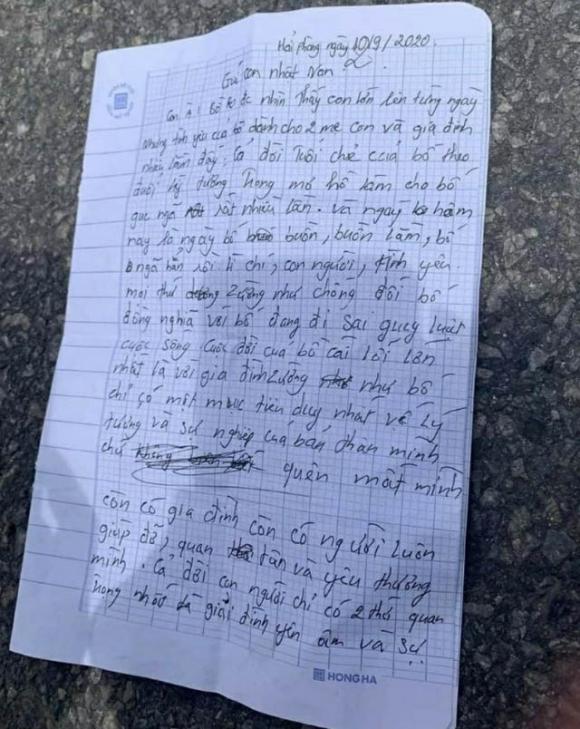 Hải phòng ngày 10/9/2020.
Gửi con nhất Non
Con à! Bố đc nhìn thấy con lớn lên từng ngày
Nhưng tình yêu của bố dành cho 2 mẹ con và gia đình
nhiều lắm đấy. Cả đời tuổi chẻ của bố theo
đuổi lý tưởng trong mơ hồ làm cho bố
gục ngã rất nhiều lần. và ngay hôm
nay là ngày bố buồn, buồn lắm, bố
ngã hẳn rồi lí chí, con người, tình yêu
mọi thứ zường như chống đối bố
đồng nghĩa với bố đang đi sai quy luật
cuộc sống cuộc đời của bố cái lỗi lớn
nhất là với gia đình zường như bố
chỉ có một mục tiêu duy nhất về lý
tưởng và sự nghiệp của bản thân mình
chứ quên mất mình
còn có gia đình còn có người luôn
giúp đỡ, quan tân và yêu thương
mình. Cả đời con người chỉ có 2 thứ quan
trong nhất là giải đình yên ấm và sự
HONG HA